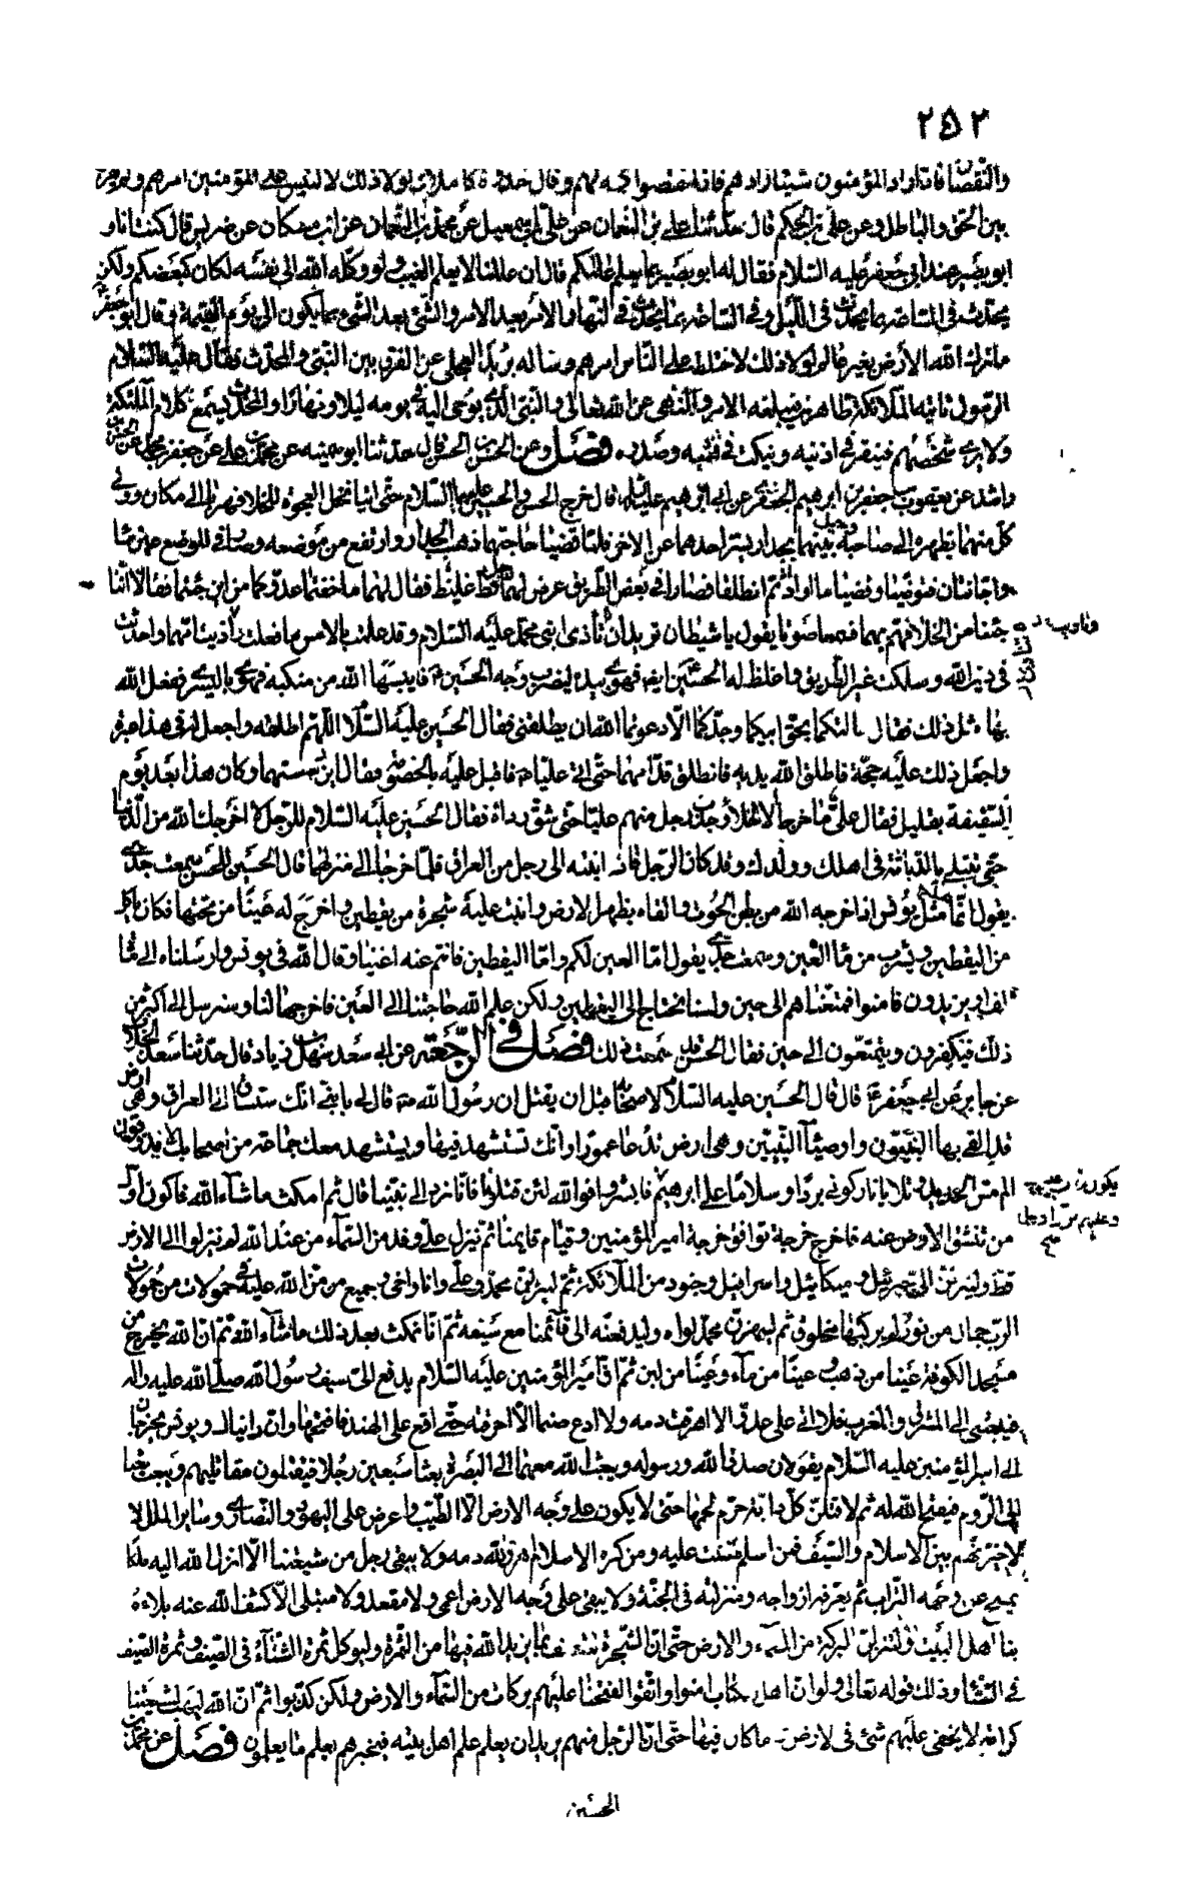 ٢٥٢
والنقصان فاذا زاد المؤمنون شيئا زادهم فاذا نقصوا لهم وقال خذوه كاملا ولولا ذلك لالتبس على المؤمنين امرهم ولم يفرق
بين الحق والباطل وعن علي بن الحكم قال حدثنا علي بن النعمان عن علي بن اسمعيل عن محمد بن النعمان عن ابن مسكان عن ضريس قال كنت انا و
ابو بصير عند ابي جعفر عليه السلام فقال له ابو بصير بما يعلم عالمكم قال ان عالمنا لا يعلم الغيب ولو وكله الله الى نفسه لكان كبعضكم ولكن
يحدث في الساعة بما يحدث في الليل وفي الساعة بما يحدث في النهار الامر بعد الامر والشيء بعد الشيء بما يكون الى يوم القيمة وقال ابو جعفر
ما ترك الله الارض بغير عالم ولولا ذلك لاختلط على الناس امرهم وساله بريد العجلي عن الفرق بين النبي والمحدث فقال عليه السلام
الرسول تاتيه الملائكة ظاهرين فتبلغه الامر والنهي عن الله تعالى والنبي الذي يوحى اليه في يومه ليلا ونهارا والمحدث يسمع كلام الملئكة
ولا يرى شخصهم فينقر في اذنيه وينكت في قلبه وصدره فصل وعن الحسن بن الحسن قال حدثنا ابو سمينه عن محمد بن علي عن جعفر بن محمد عن الحسن بن
راشد عن يعقوب بن جعفر بن ابرهيم الجعفري عن ابي ابرهيم عليه السلم قال خرج الحسن والحسين عليهما السلام حتى اتيا نخل العجوة للخلا فهربا الى مكان وولى
كل منهما بظهره الى صاحبه فرمى الله بينهما بجدار يستر احدهما عن الاخر فلما قضيا حاجتهما ذهب الجدار وارتفع من موضعه وصار في الموضع عين ماء
واجانتان فتوضيا وقضيا ما ارادا ثم انطلقا فصارا في بعض الطريق عرض لهما فظ غليظ فقال لهما ما خفتما عدوكما من اين جئتما فقالا اننا
جئنا من الخلا فهم بهما فسمعا صوتا يقول يا شيطان تريد ان تأذى ابني محمد عليه السلام وقد علمت بالامس ما فعلت واذيت امهما واحدثت
في دين الله وسلكت غير الطريق واغلظ له الحسين ايضا فهوى بيده ليضرب وجه الحسين فايبسها الله من منكبه فهوى باليسرى ففعل الله
بها مثل ذلك فقال سالتكما بحق ابيكما وجدكما الا دعوتما الله ان يطلقني فقال الحسين عليه السلام اللهم اطلقه واجعل له في هذا عبرة
واجعل ذلك عليه حجة فاطلق الله يديه فانطلق قدامهما حتى اتى عليا فاقبل عليه بالخصومة وقال اين دسستهما وكان هذا بعد يوم
السقيفة بقليل فقال علي ما خرجا الا للخلا وجذب رجل منهم عليا حتى شق رداه فقال الحسين عليه السلام للرجل لا اخرجك الله من الدنيا
حتى تبتلى بالدياثة في اهلك وولدك وقد كان الرجل قاد ابنته الى رجل من العراق فلما خرجا الى منزلهما قال الحسين للحسن سمعت جدي
يقول انما مثلكما مثل يونس اذ اخرجه الله من بطن الحوت والقاه بظهر الارض وانبت عليه شجرة من يقطين واخرج له عينا من تحتها فكان ياكل
من اليقطين ويشرب من ماء العين وسمعت جدي يقول اما العين لكم واما اليقطين فانتم عنه اغنيا وقال الله في يونس وارسلناه الى مائة
الف او يزيدون فامنوا فمتعناهم الى حين ولسنا نحتاج الى اليقطين ولكن علم الله حاجتنا الى العين فاخرجها لنا وسنرسل الى اكثر من
ذلك فيكفرون ويتمتعون الى حين فقال الحسن قد سمعت ذلك فصل في الرجعة عن ابي سعد سهل بن زياد قال حدثنا سعد الجلاب
عن جابر عن ابي جعفر ع قال قال الحسين عليه السلام لاصحابه قبل ان يقتل ان رسول الله ص قال لي يا بني انك ستساق الى العراق وهي ارض
قد التقى بها النبيون واوصياء النبيين وهي ارض تدعا عمورا وانك تستشهد فيها ويستشهد معك جماعة من اصحابك لا يجدون
الم مس الحديد وتلا يا نار كوني بردا وسلاما على ابرهيم فابشروا فوالله لئن قتلونا فانا نرد الى نبينا قال ثم امكث ما شاء الله فاكون اول
من تنشق الارض عنه فاخرج خرجة توافق خرجة امير المؤمنين وقيام قايمنا ثم لينزل علي وفد من السماء من عند الله لم ينزلوا الى الارض
قط ولينزلن الي جبرئيل وميكائيل واسرافيل وجنود من الملائكة ثم لينزلن محمد وعلي وانا واخي وجميع من من الله عليه في حمولات من حمولات
الرب جمال من نور لم يركبها مخلوق ثم ليهزن محمد لواه وليدفعنه الى قائمنا مع سيفه ثم انا نمكث بعد ذلك ما شاء الله ثم ان الله يخرج من
مسجد الكوفة عينا من ذهب وعينا من ماء وعينا من لبن ثم ان امير المؤمنين عليه السلام يدفع الي سيف رسول الله صلى الله عليه واله
فيبعثني الى المشرق والمغرب فلا اتي على عدو الا اهرقت دمه ولا ادع صنما الا احرقته حتى اقع على الهند فافتحها وان دانيال ويونس يخرجان
الى امير المؤمنين عليه السلام يقولان صدق الله ورسوله ويبعث الله معهما الى البصرة بعثا سبعين رجلا فيقتلون مقاتليهم ويبعث بعثا
الى الروم فيفتح الله له ثم لاقتلن كل دابة حرم لحمها حتى لا يكون على وجه الارض الا الطيب واعرض على اليهود والنصارى وساير الملل الا
لاخيرنهم بين الاسلام والسيف فمن اسلم مننت عليه ومن كره الاسلام اهرق الله دمه ولا يبقى رجل من شيعتنا الا انزل الله اليه ملكا
يمسح عن وجهه التراب ثم يعرفه ازواجه ومنزلته في الجنة ولا يبقى على وجه الارض اعمى ولا مقعد ولا مبتلى الا كشف الله عنه بلاءه
بنا اهل البيت ولتنزلن البركة من السماء والارض حتى ان الشجرة بما يزيد الله فيها من الثمرة وليوكل ثمرة الشتاء في الصيف وثمرة الصيف
في الشتا وذلك قوله تعالى ولو ان اهل الكتاب امنوا واتقوا لفتحنا عليهم بركات من السماء والارض ولكن كذبوا ثم ان الله ليهب لشيعتنا
كرامة لا يخفى عليهم شئ في الارض وما كان فيها حتى ان الرجل منهم يريد ان يعلم علم اهل بيته فيخبرهم بعلم ما يعلمون فصل عن محمد بن
الحسين